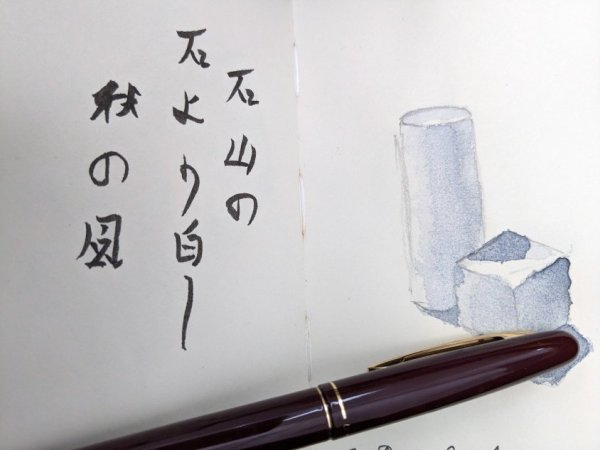 石山の
石より白し
秋の風